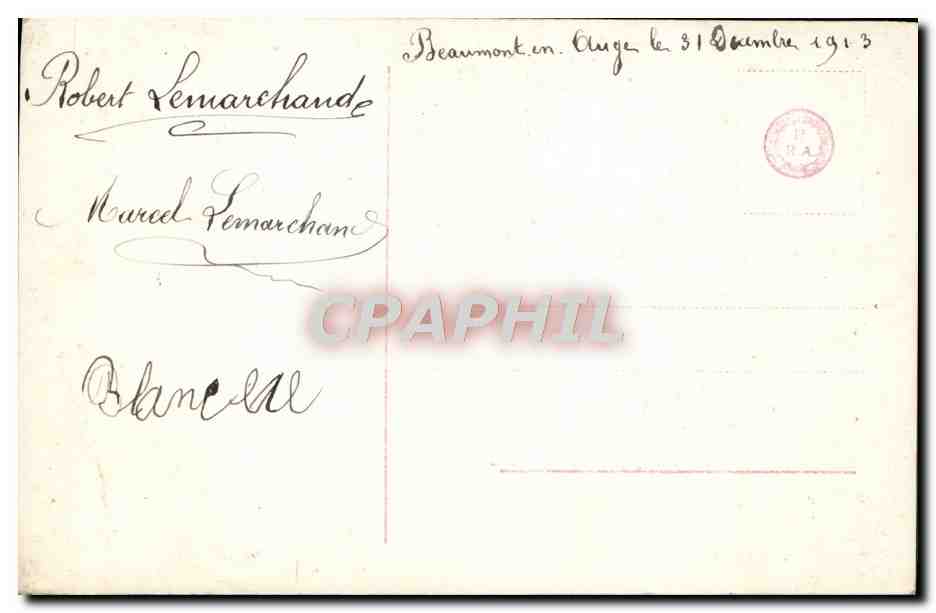 Beaumont-en-Auge le 31 Décembre 1913
Robert Lemarchand
Marcel Lemarchand
CPAPHIL